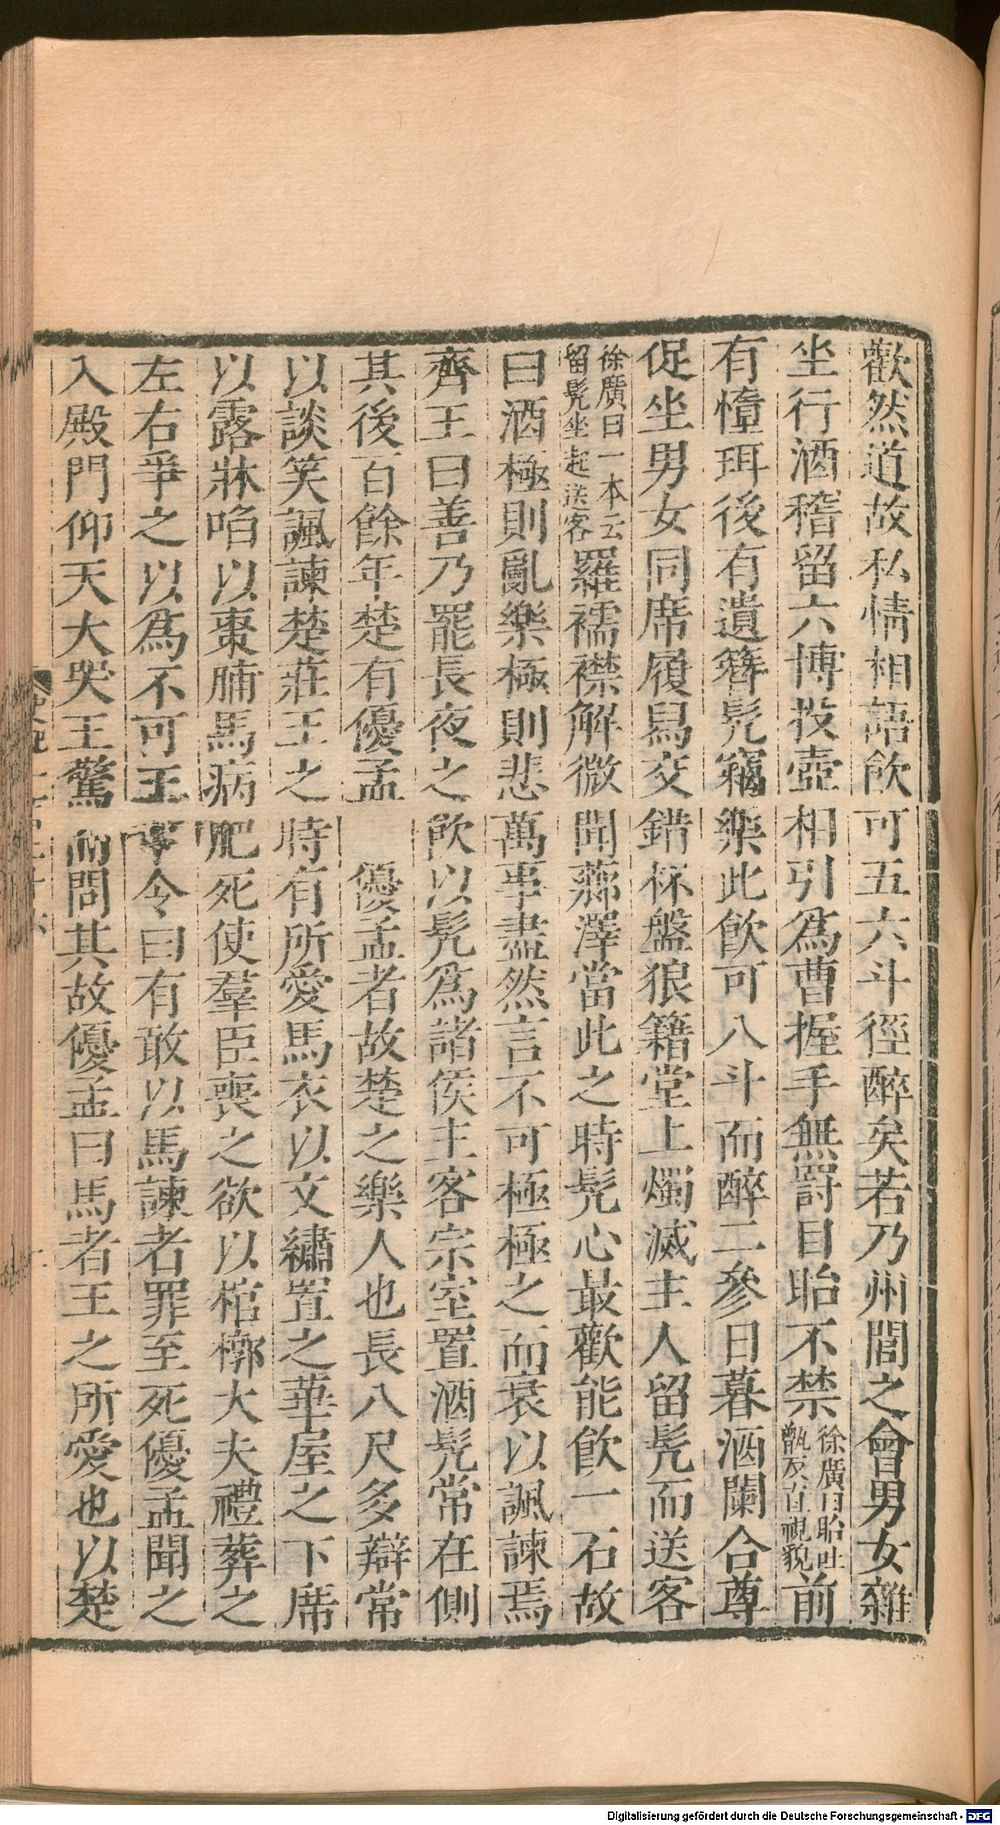 歡然道故私情相語飲可五六斗徑醉矣若乃州閭之會男女雜
坐行酒稽留六博投壺相引爲曹握手無罰目眙不禁徐廣曰眙吐甑反直視貌前
有墮珥後有遺簪髡竊樂此飲可八斗而醉二參日暮酒闌合尊
促坐男女同席履舄交錯杯盤狼籍堂上燭滅主人留髡而送客
徐廣曰一本云留髡坐起送客羅襦襟解微聞薌澤當此之時髡心最歡能飲一石故
曰酒極則亂樂極則悲萬事盡然言不可極極之而衰以諷諫焉
齊王曰善乃罷長夜之飲以髡爲諸侯主客宗室置酒髡常在側
其後百餘年楚有優孟 優孟者故楚之樂人也長八尺多辯常
以談笑諷諫楚莊王之時有所愛馬衣以文繡置之華屋之下席
以露牀啗以棗脯馬病肥死使羣臣喪之欲以棺槨大夫禮葬之
左右爭之以爲不可王下令曰有敢以馬諫者罪至死優孟聞之
入殿門仰天大哭王驚而問其故優孟曰馬者王之所愛也以楚
Digitalisierung gefördert durch die Deutsche Forschungsgemeinschaft - DFG